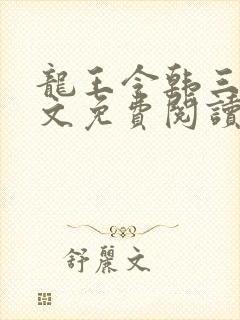 龍王令韩三
文免費閱讀
舒麗文